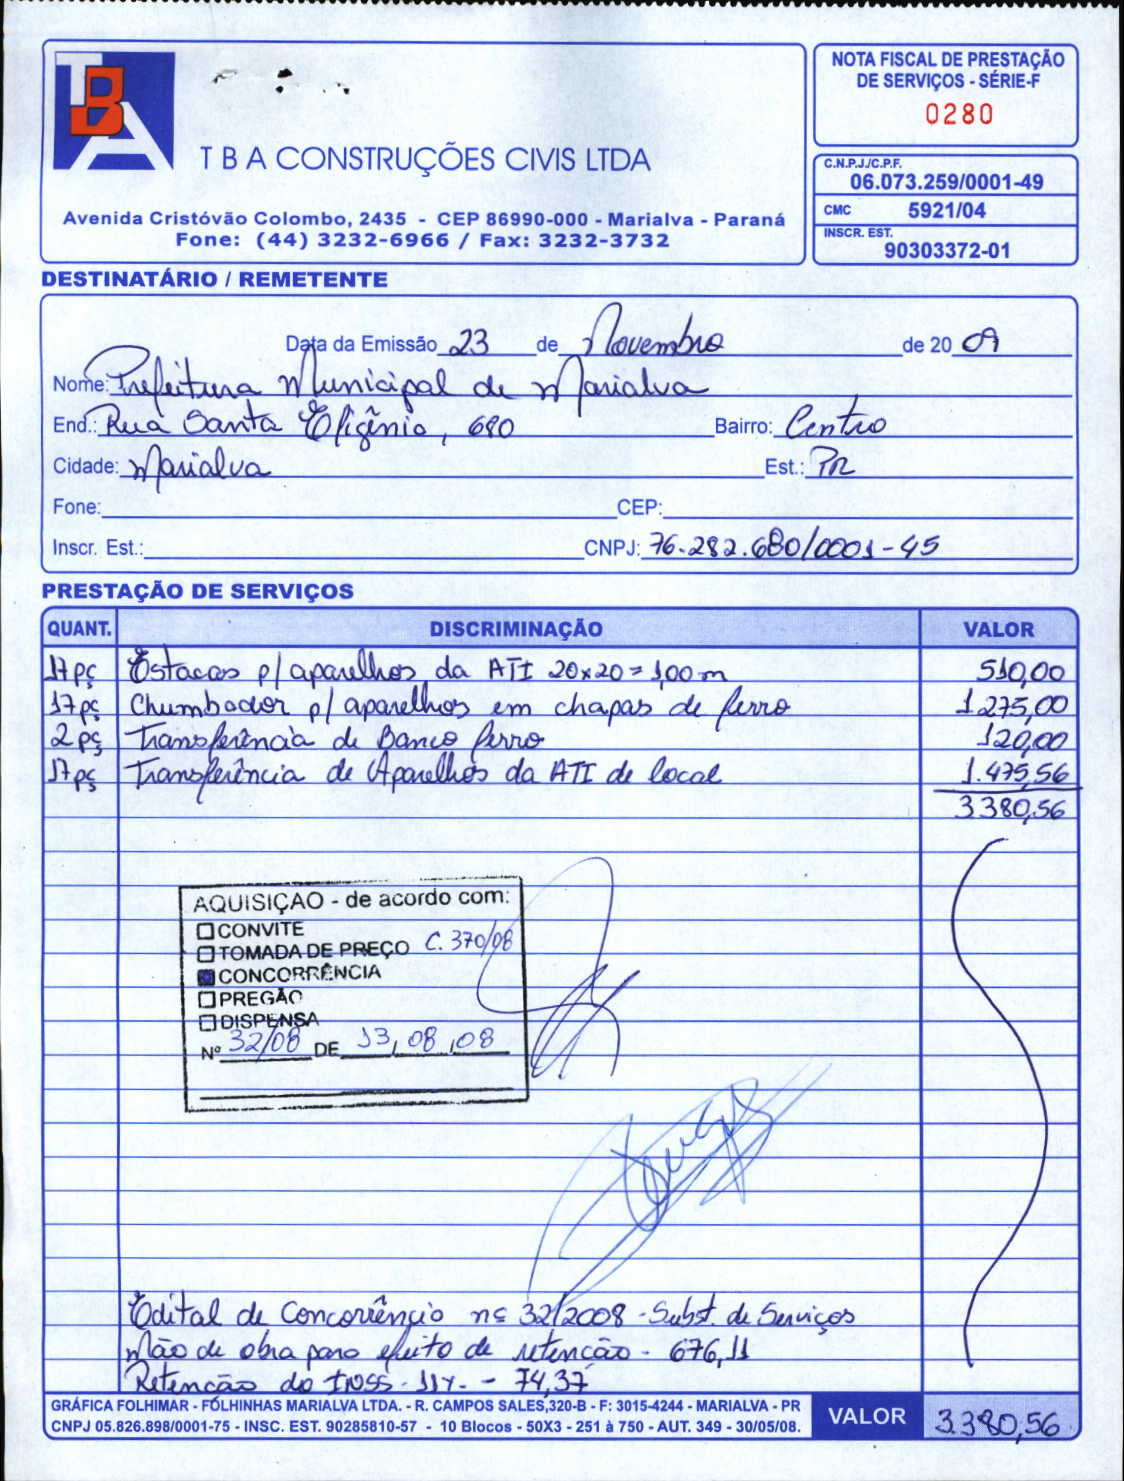 TBA
T B A CONSTRUÇÕES CIVIS LTDA
Avenida Cristóvão Colombo, 2435 - CEP 86990-000 - Marialva - Paraná
Fone: (44) 3232-6966 / Fax: 3232-3732
NOTA FISCAL DE PRESTAÇÃO
DE SERVIÇOS - SÉRIE-F
0280
C.N.P.J./C.P.F.
06.073.259/0001-49
CMC 5921/04
INSCR. EST.
90303372-01
DESTINATÁRIO / REMETENTE
Data da Emissão 23 de Novembro de 20 09
Nome: Prefeitura Municipal de Marialva
End.: Rua Santa Efigênia, 680 Bairro: Centro
Cidade: Marialva Est.: PR
Fone: CEP:
Inscr. Est.: CNPJ: 76.282.680/0001-45
PRESTAÇÃO DE SERVIÇOS
QUANT. DISCRIMINAÇÃO VALOR
17 pç Estacas p/ aparelhos da ATI 20x20 = 1,00 m 510,00
17 pç Chumbador p/ aparelhos em chapas de ferro 1.275,00
2 pç Transferência de Banco ferro 120,00
17 pç Transferência de Aparelhos da ATI de local 1.475,56
3.380,56
AQUISIÇAO - de acordo com:
CONVITE
TOMADA DE PREÇO C. 370/08
CONCORRÊNCIA
PREGÃO
DISPENSA
Nº 32/08 DE 13/08/08
Edital de Concorrência nº 32/2008 - Subst. de Serviços
Mão de obra para efeito de retenção - 676,11
Retenção do INSS - 11% - 74,37
GRÁFICA FOLHIMAR - FOLHINHAS MARIALVA LTDA. - R. CAMPOS SALES,320-B - F: 3015-4244 - MARIALVA - PR
CNPJ 05.826.898/0001-75 - INSC. EST. 90285810-57 - 10 Blocos - 50X3 - 251 à 750 - AUT. 349 - 30/05/08.
VALOR 3.380,56